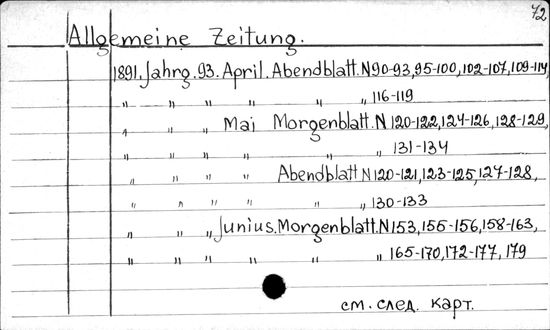 72
Allgemeine Zeitung.
1891. Jahrg. 93. April. Abendblatt. N 90-93, 95-100, 102-107, 109-114,
„ „ „ „ „ „ 116-119
„ „ „ Mai Morgenblatt. N 120-122, 124-126, 128-129,
„ „ „ „ „ „ 131-134
„ „ „ „ Abendblatt N 120-121, 123-125, 127-128,
„ „ „ „ „ „ 130-133
„ „ „ Junius. Morgenblatt. N 153, 155-156, 158-163,
„ „ „ „ „ „ 165-170, 172-177, 179
см. след. карт.